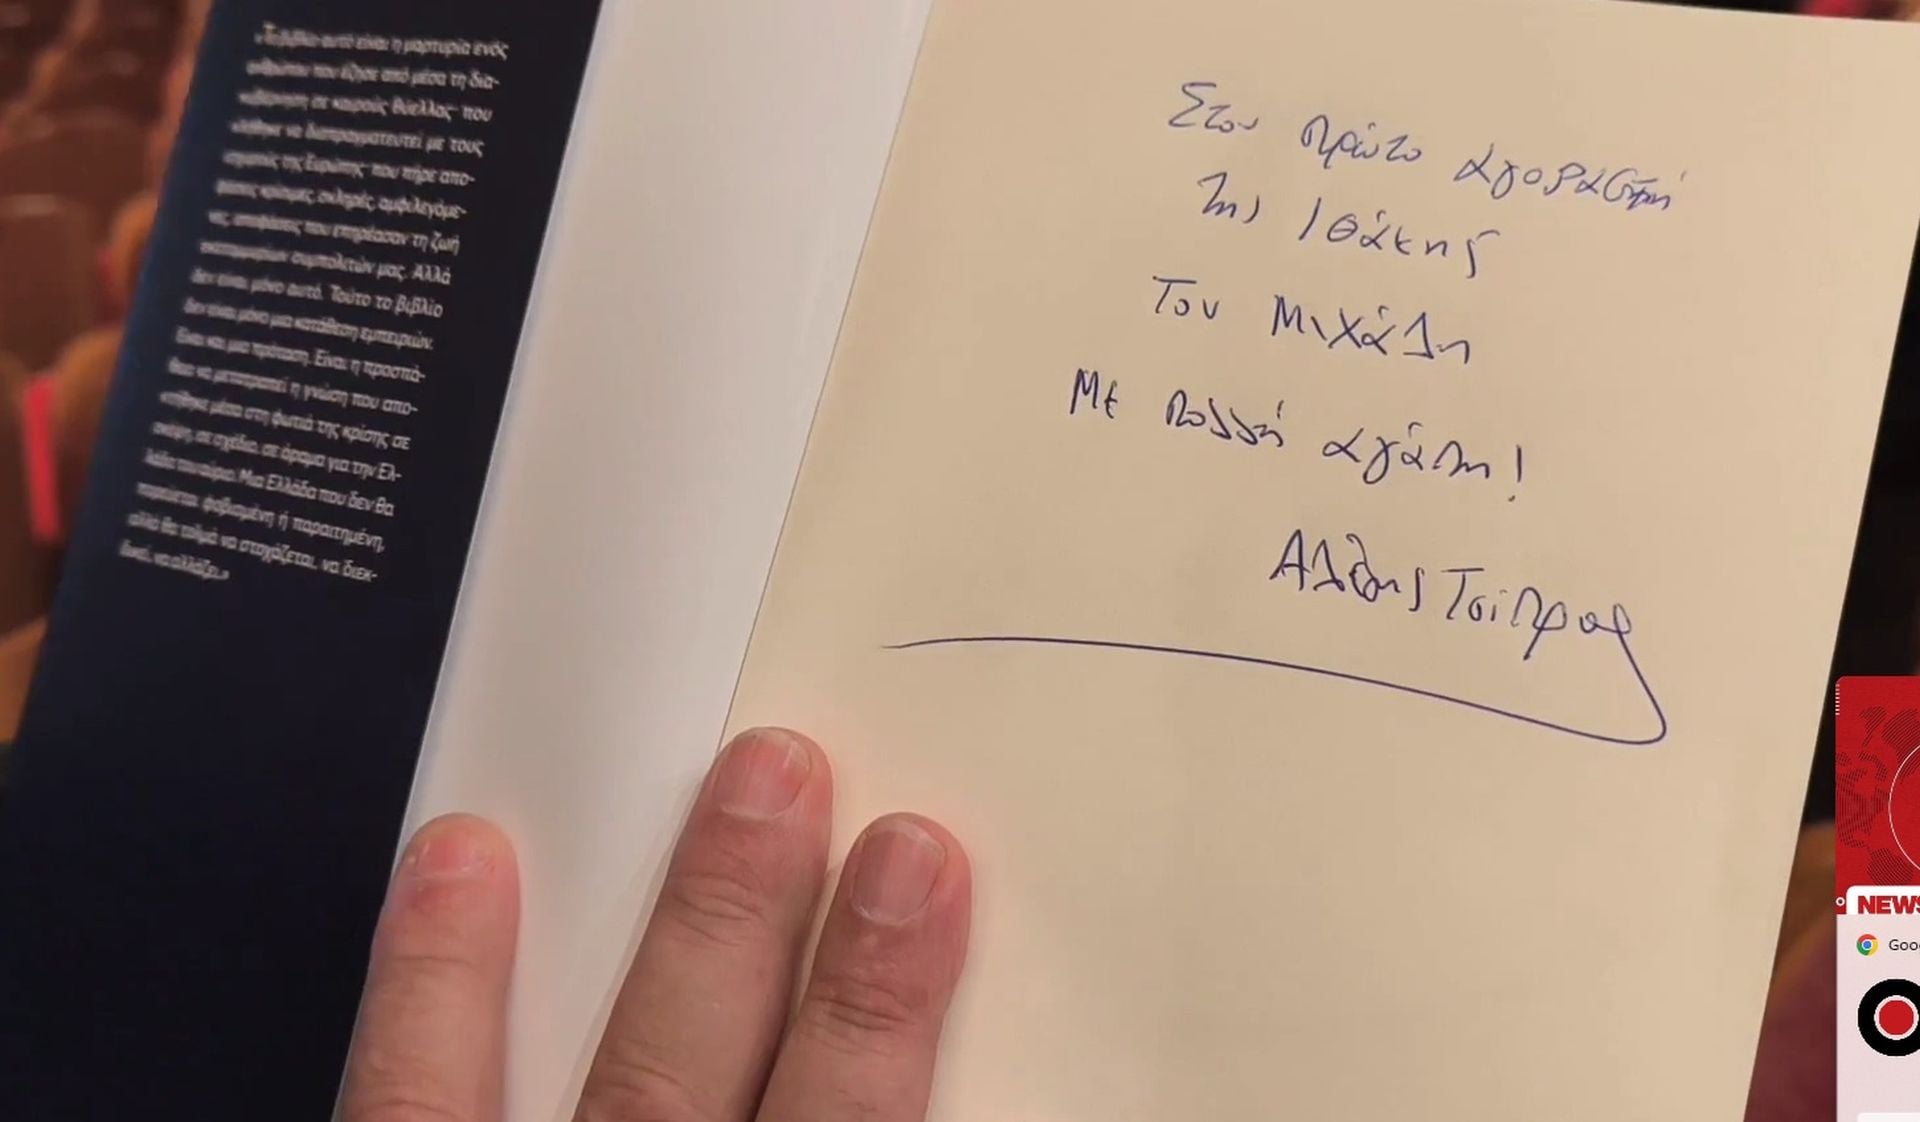 «Το βιβλίο αυτό είναι η μαρτυρία ενός
ανθρώπου που έζησε από μέσα τη δια-
κυβέρνηση σε καιρούς θύελλας· που
να διαπραγματευτεί με τους
ισχυρούς της Ευρώπης· που πήρε απο-
φάσεις κρίσιμες, σκληρές, αμφιλεγόμε-
νες, αποφάσεις που επηρέασαν τη ζωή
εκατομμυρίων συμπολιτών μας. Αλλά
δεν είναι μόνο αυτό. Τούτο το βιβλίο
δεν είναι μόνο μια κατάθεση εμπειριών.
Είναι και μια πρόταση. Είναι η προσπά-
θεια να μετατραπεί η γνώση που απο-
κτήθηκε μέσα στη φωτιά της κρίσης σε
σκέψη, σε σχέδιο, σε όραμα για την Ελ-
λάδα του αύριο. Μια Ελλάδα που δεν θα
πορεύεται φοβισμένη ή παραιτημένη,
αλλά θα τολμά να στοχάζεται, να διεκ-
δικεί, να αλλάζει.»
Στον πρώτο αγοραστή
της Ιθάκης
Τον Μιχάλη
Με πολλή αγάπη!
Αλέξης Τσίπρας
NEWS
Goo